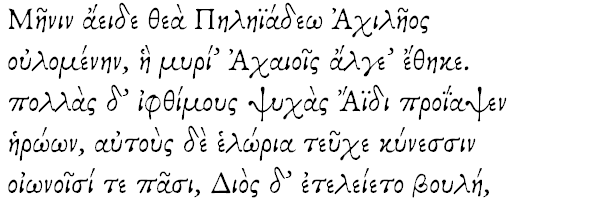 Μῆνιν ἄειδε θεὰ Πηληϊάδεω Ἀχιλῆος
οὐλομένην, ἣ μυρί’ Ἀχαιοῖς ἄλγε’ ἔθηκε.
πολλὰς δ’ ἰφθίμους ψυχὰς Ἄϊδι προΐαψεν
ἡρώων, αὐτοὺς δὲ ἑλώρια τεῦχε κύνεσσιν
οἰωνοῖσί τε πᾶσι, Διὸς δ’ ἐτελείετο βουλή,